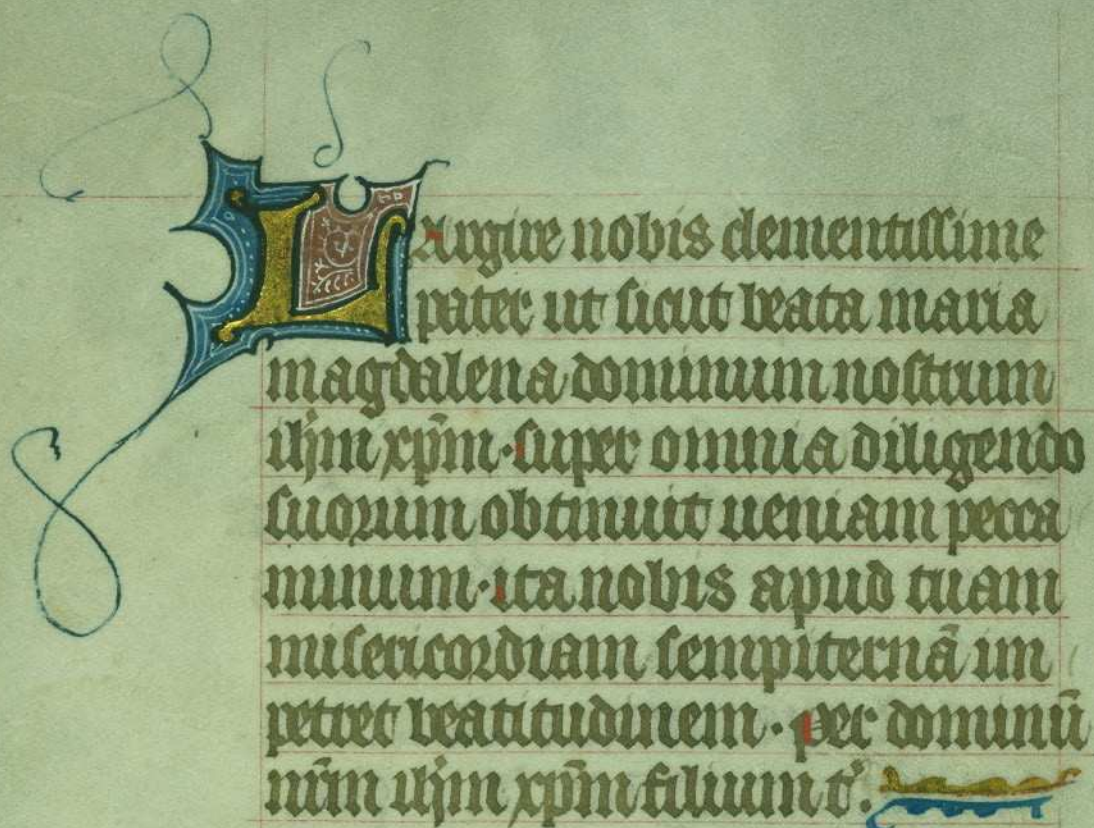 Largire nobis clementissime
pater ut sicut beata maria
magdalena dominum nostrum
ihm xpm· super omnia diligendo
suorum obtinuit ueniam pecca
minum· ita nobis apud tuam
misericordiam sempiternā im
petret beatitudinem· per dominū
nrm ihm xpm filium t'.